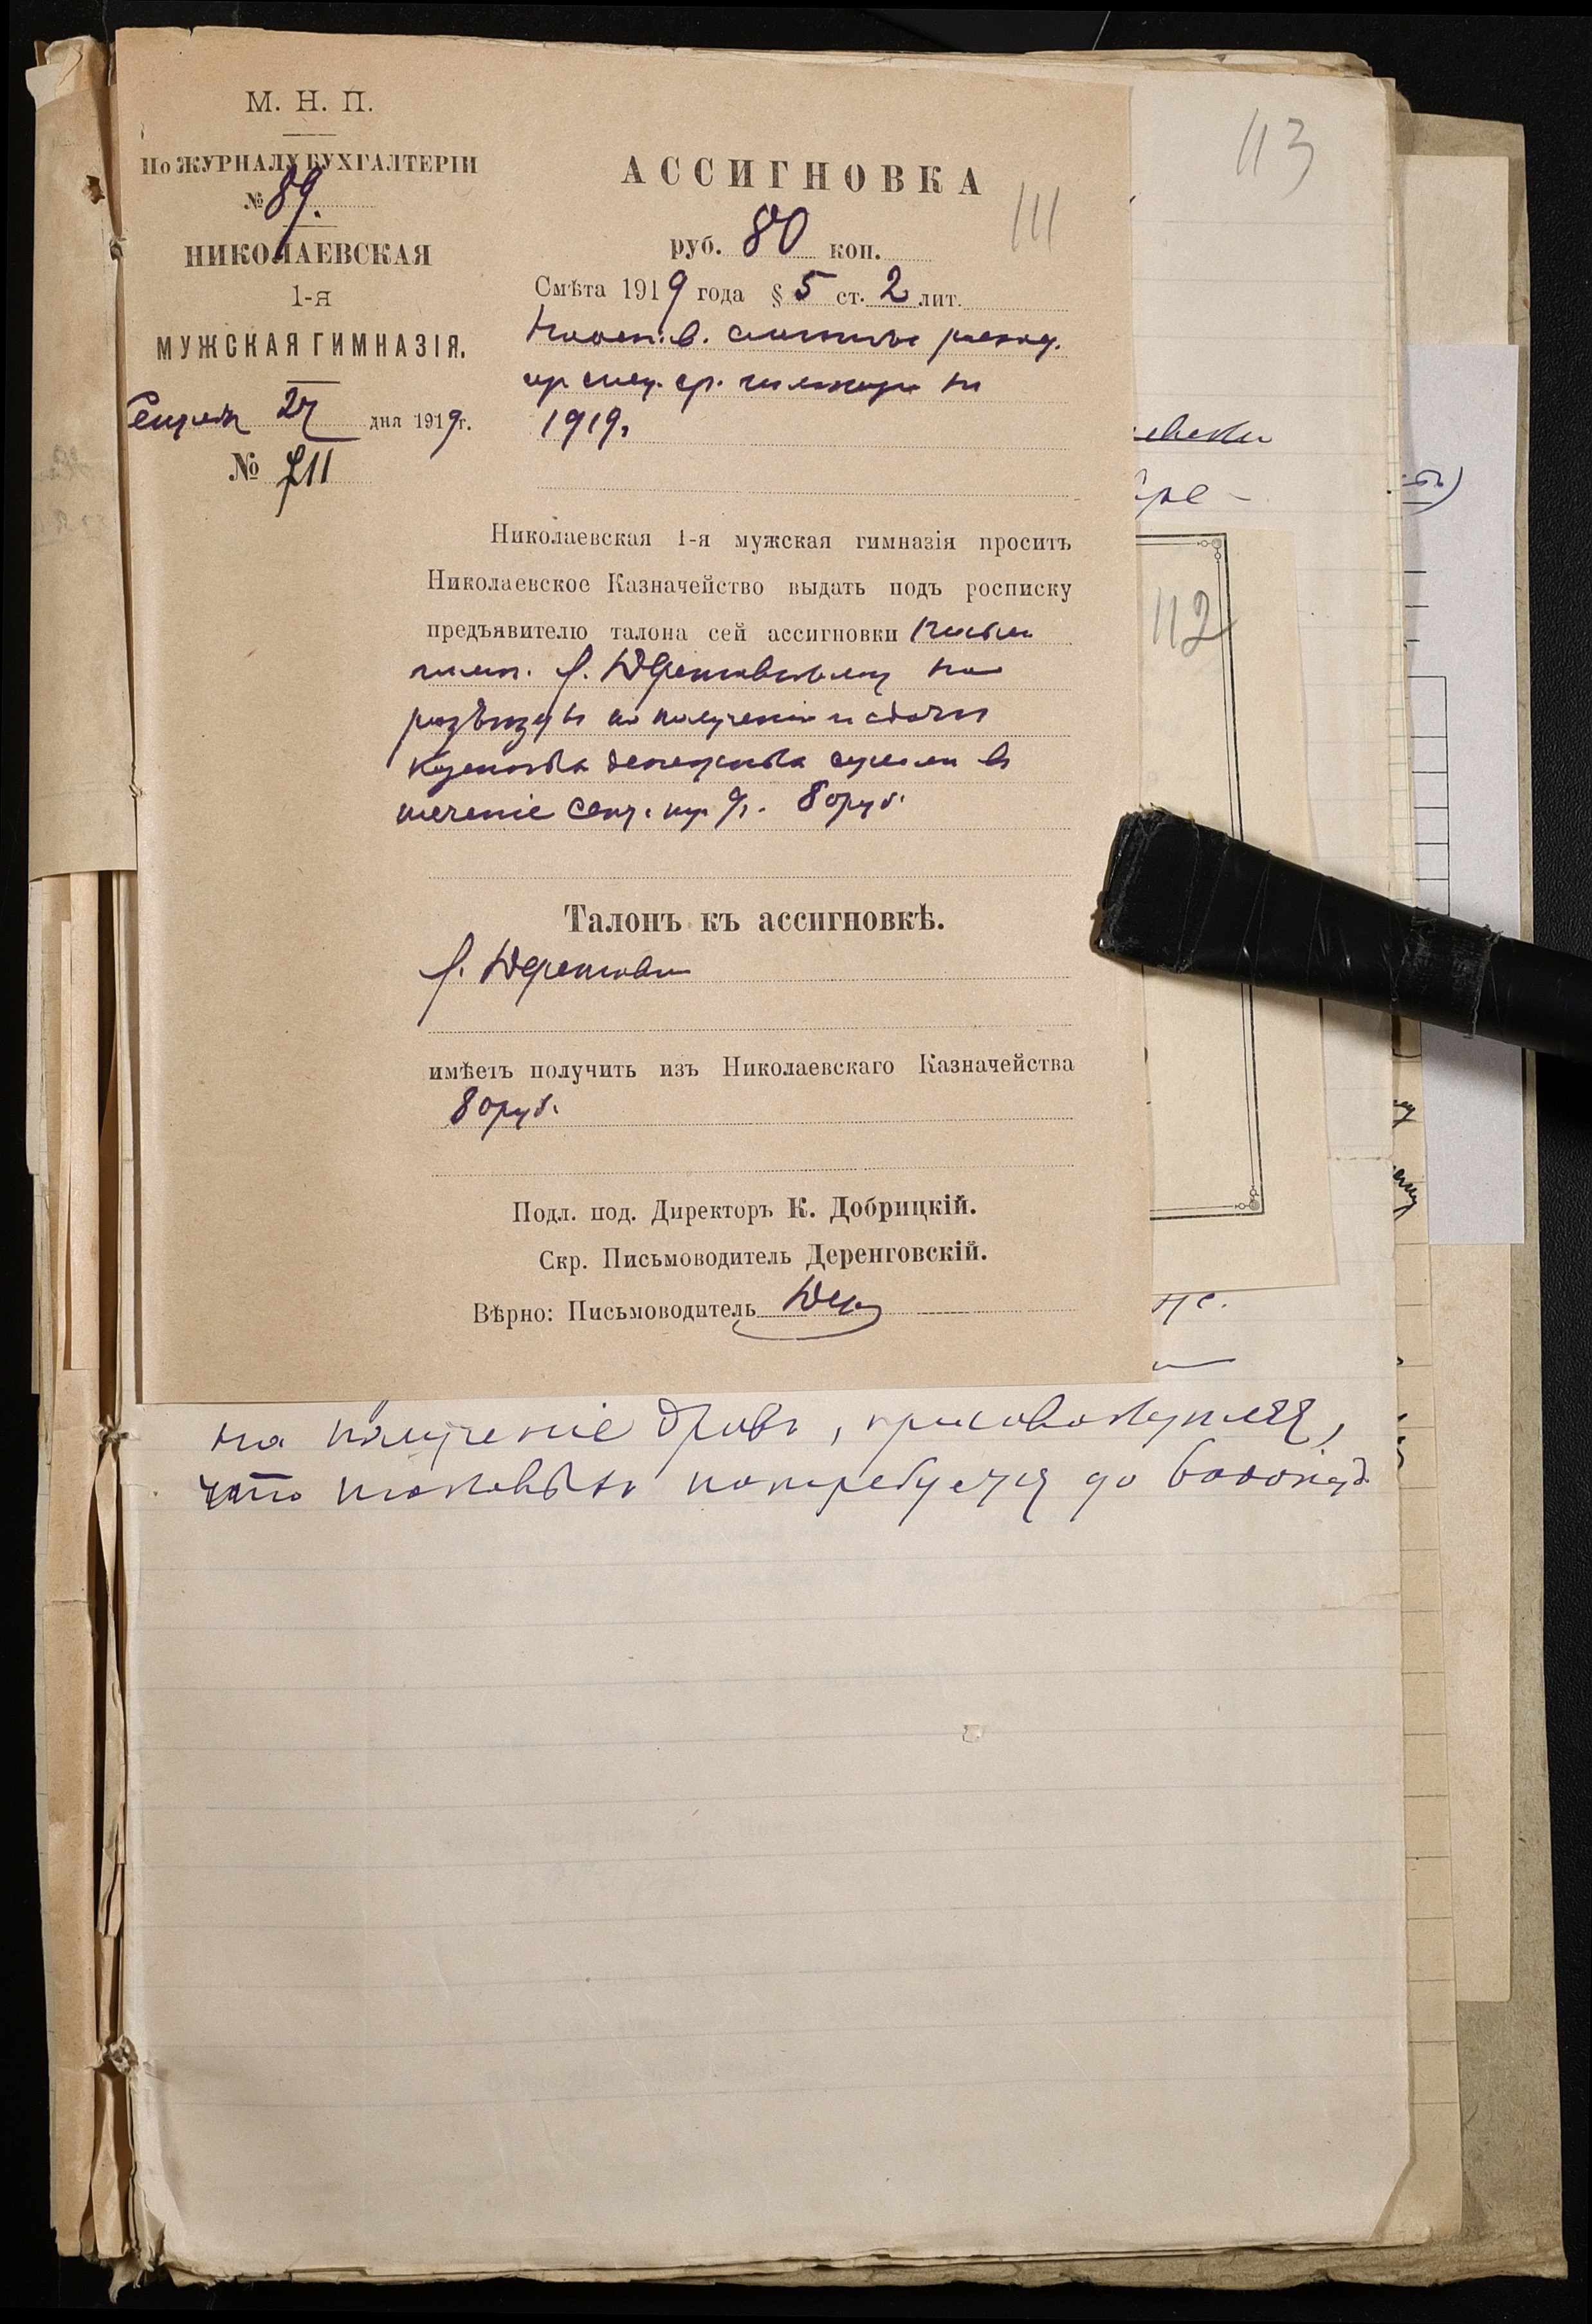 М. Н. П.
По ЖУРНАЛУ БУХГАЛТЕРІИ
№ 89.
НИКОЛАЕВСКАЯ
1-я
МУЖСКАЯ ГИМНАЗІЯ.
27 дня 1919 г.
№ 711
АССИГНОВКА
111
руб. 80 коп.
Смѣта 1919 года § 5 ст. 2 лит.
расход.
спец. ср. на
1919.
Николаевская 1-я мужская гимназія проситъ
Николаевское Казначейство выдать подъ росписку
предъявителю талона сей ассигновки
на
разъѣзды по полученію и сдачи
денежных сумм в
теченіе сент. 80 руб.
Талонъ къ ассигновкѣ.
имѣетъ получить изъ Николаевскаго Казначейства
80 руб.
Подл. под. Директоръ К. Добрицкій.
Скр. Письмоводитель Деренговскій.
Вѣрно: Письмоводитель Дер
113
112
на полученіе дровъ, присовокупляя,
что таковыхъ потребуется до